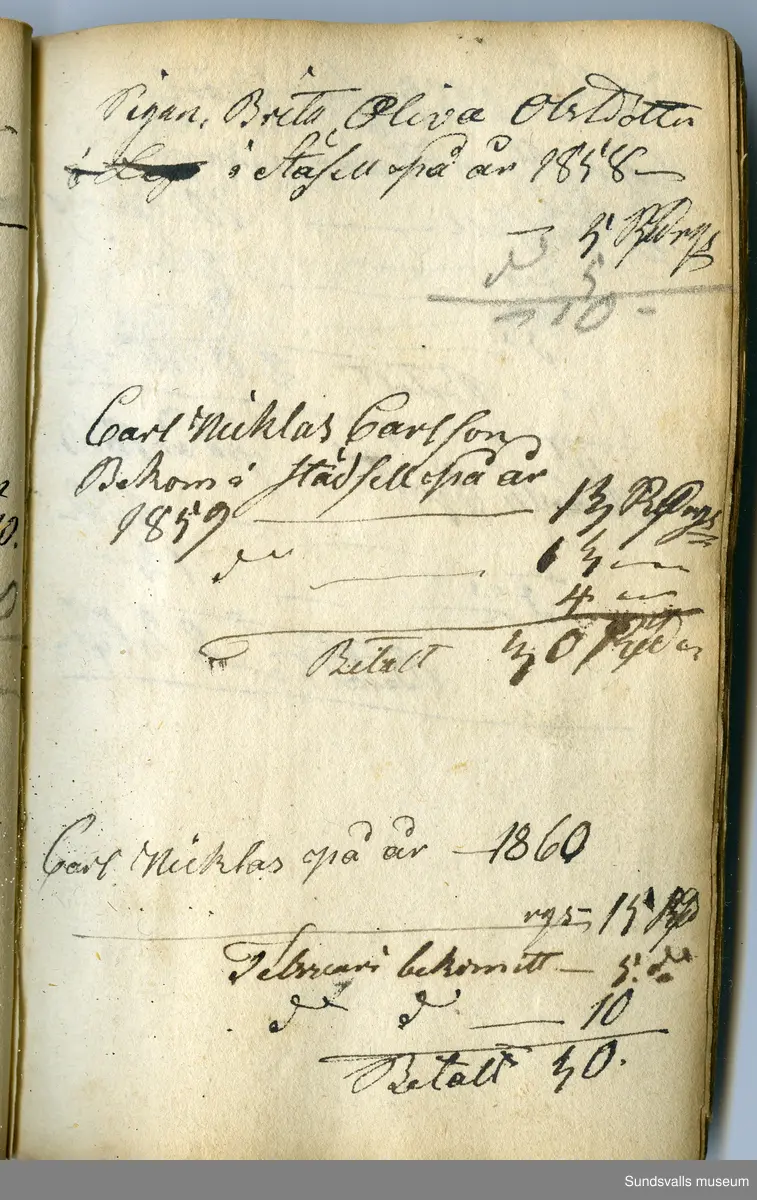 Pigan, Brita Oliva Olsdotter
i Städsell på år 1858 —
— 5 Rd rgs
d° 5
10 –
Carl Nicklas Carlsson
Bekom i Städsell på år
1859 — 13 Rd rgs
d° — 13 —
4 —
Betalt 30 Rd
Carl Nicklas på år — 1860
rgs – 15 Rd
Februari bekomitt — 5. d°
d° d° — 10
Betalt 30.
Sundsvalls museum